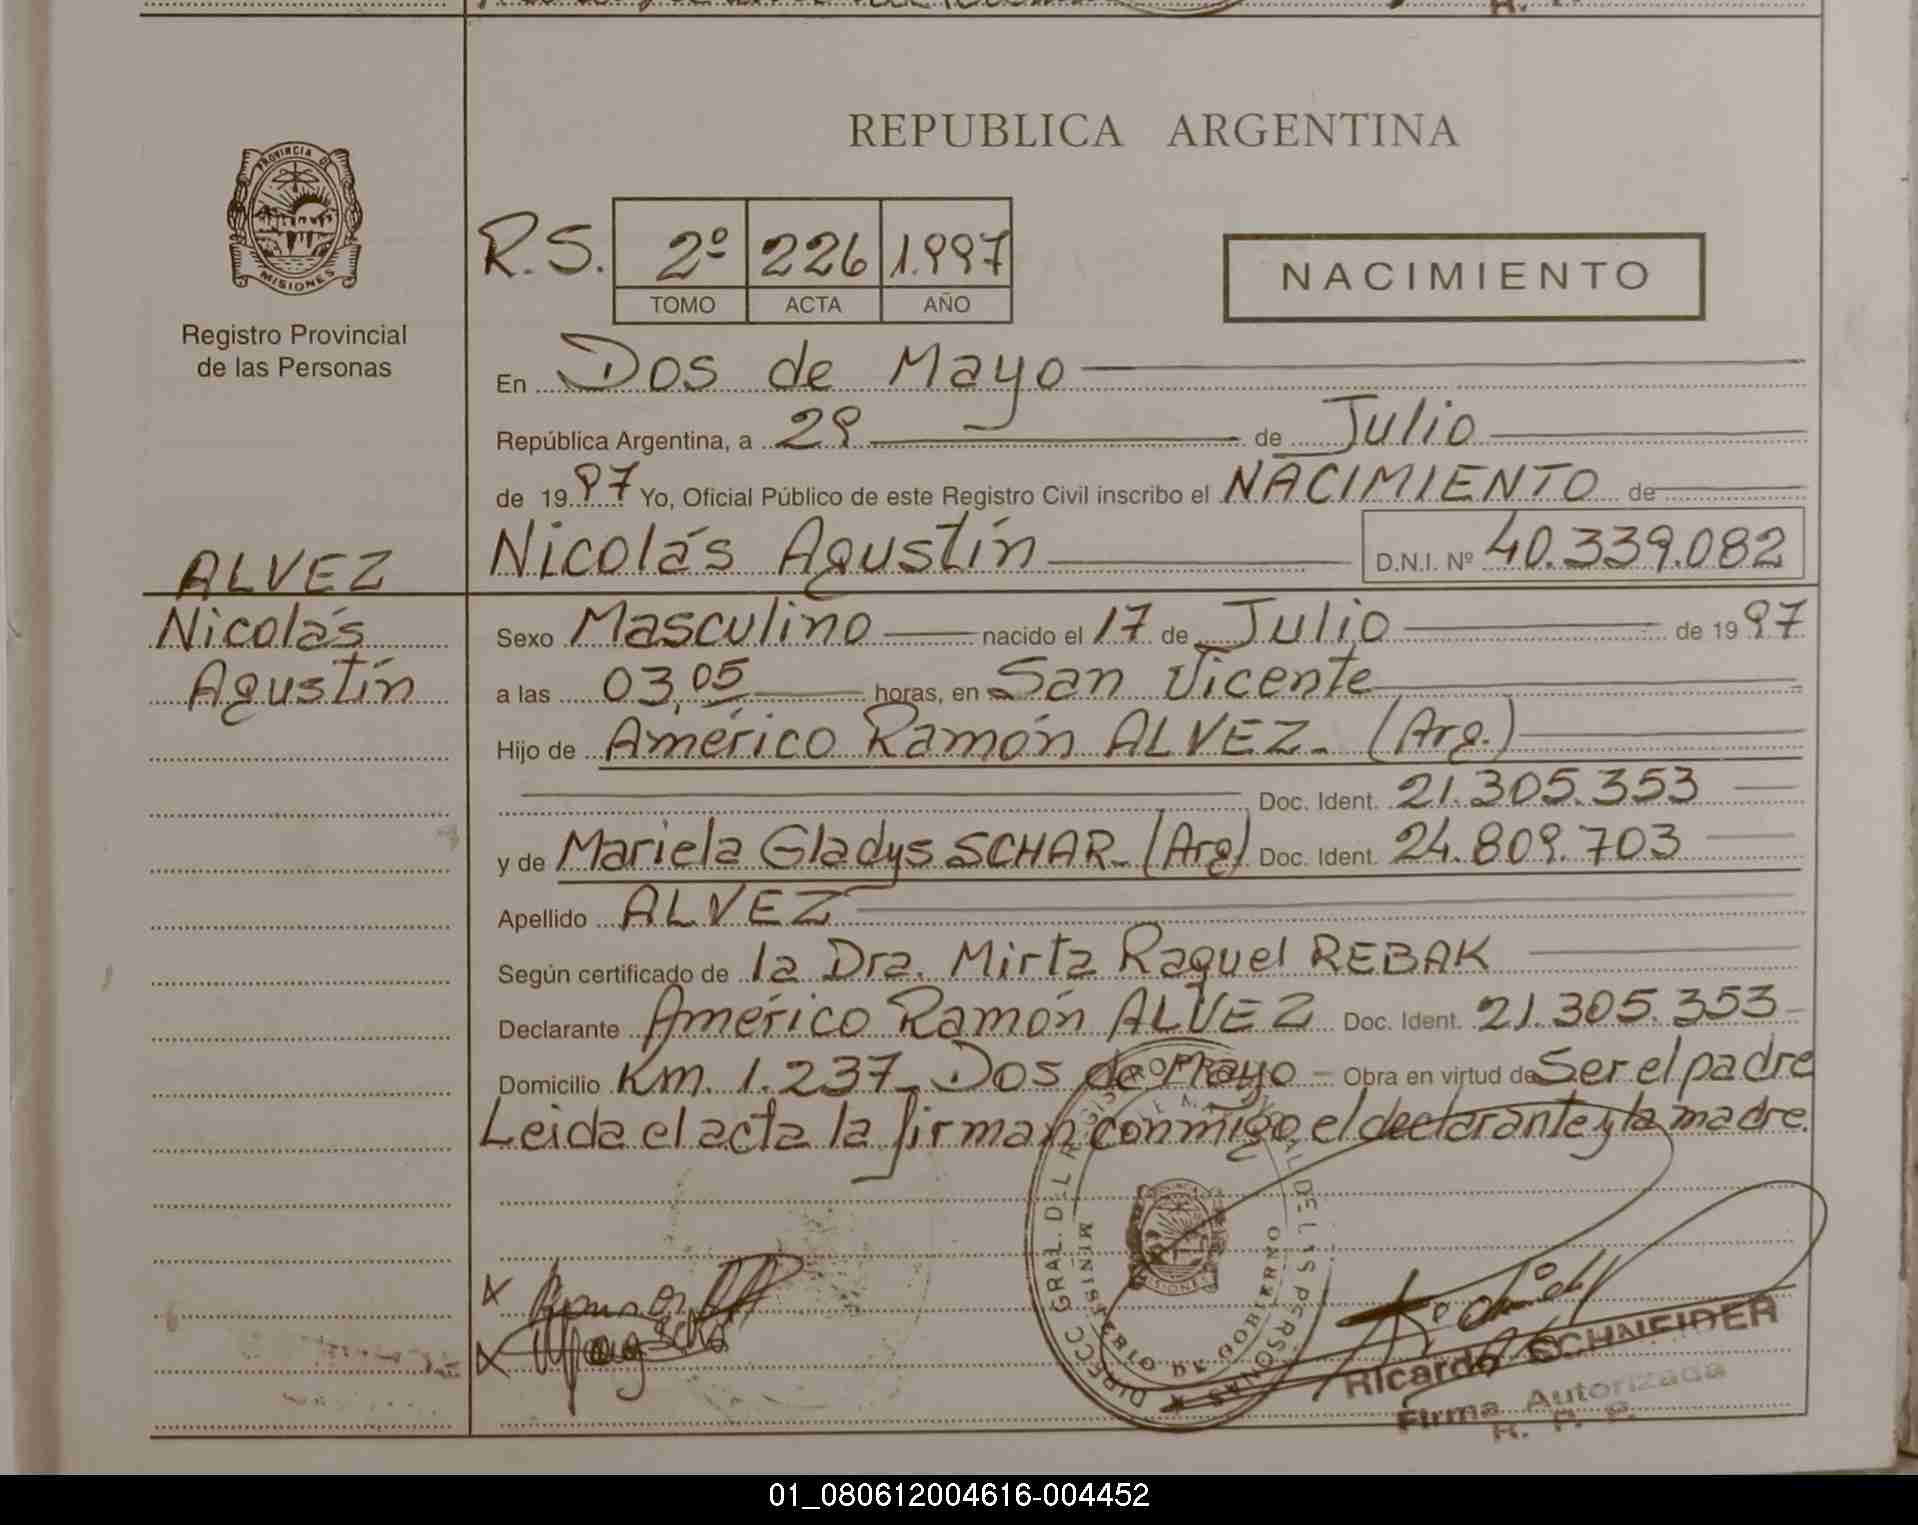 REPUBLICA ARGENTINA
PROVINCIA DE
MISIONES
Registro Provincial
de las Personas
R.S. 2º 226 1.997
TOMO ACTA AÑO
NACIMIENTO
En Dos de Mayo
República Argentina, a 29 de Julio
de 1997 Yo, Oficial Público de este Registro Civil inscribo el NACIMIENTO de
Nicolás Agustín D.N.I. Nº 40.339.082
ALVEZ
Nicolás
Agustín
Sexo Masculino nacido el 17 de Julio de 1997
a las 03,05 horas, en San Vicente
Hijo de Américo Ramón ALVEZ- (Arg.)
Doc. Ident. 21.305.353
y de Mariela Gladys SCHAR- (Arg) Doc. Ident. 24.809.703
Apellido ALVEZ
Según certificado de la Dra. Mirta Raquel REBAK
Declarante Américo Ramón ALVEZ Doc. Ident. 21.305.353
Domicilio Km. 1.237- Dos de Mayo Obra en virtud de Ser el padre
Leida el acta la firman conmigo, el declarante y la madre.
DIRECC GRAL. DEL REGISTRO DE LAS PERSONAS
MINISTERIO DE GOBIERNO
MISIONES
Ricardo SCHNEIDER
Firma Autorizada
R. P. P.
01_080612004616-004452